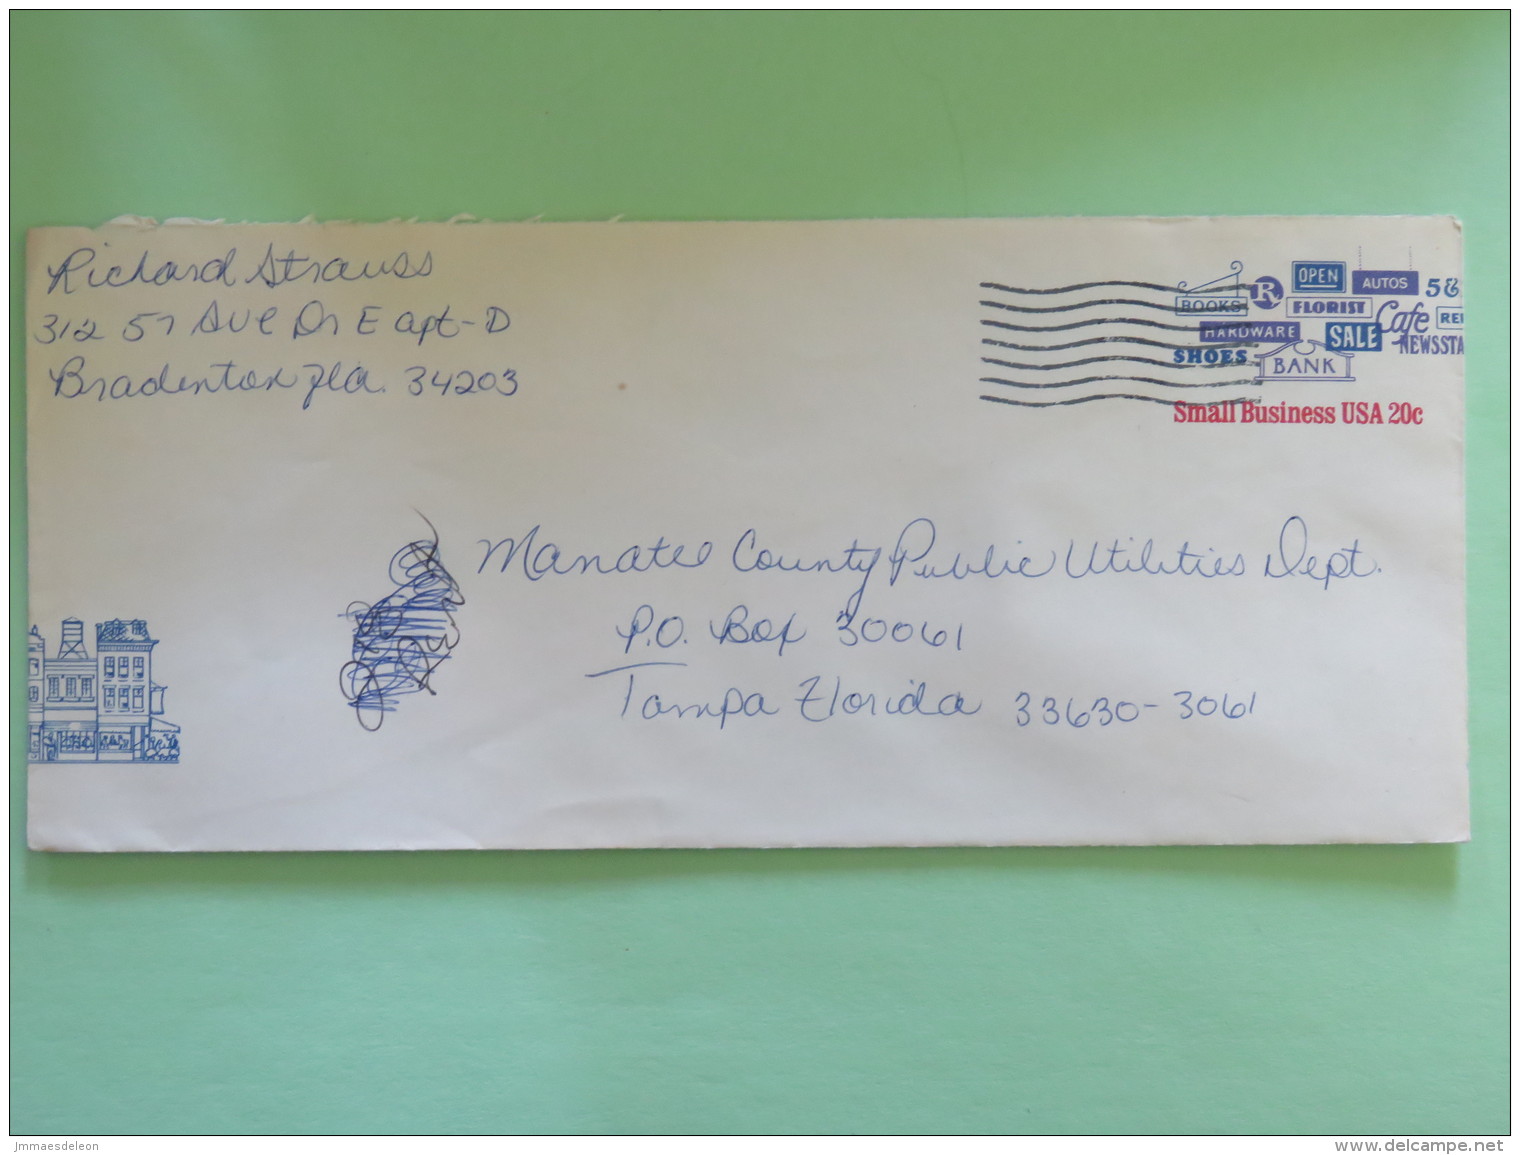 Richard Strauss
312 57 Ave Dr E apt-D
Bradenton Fla. 34203
OPEN
AUTOS
5&
BOOKS
R
FLORIST
Cafe
HARDWARE
SALE
NEWSSTA
SHOES
BANK
Small Business USA 20c
Manatee County Public Utilities Dept.
P.O. Box 30061
Tampa Florida 33630-3061
jmmaesdeleon
www.delcampe.net